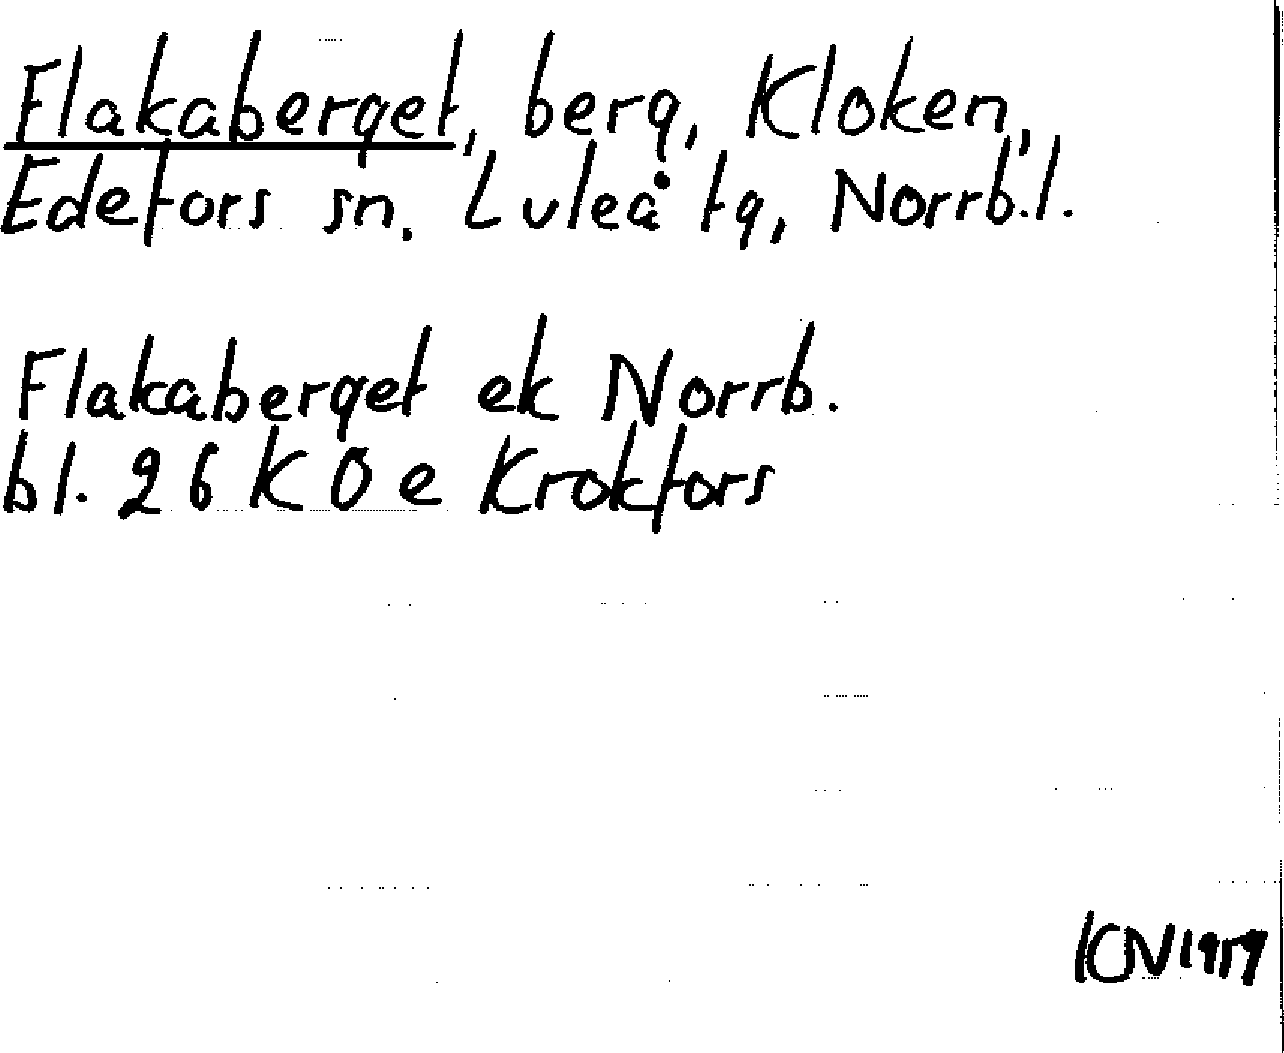 Flakaberget, berg, Kloken,
Edefors sn. Luleå tg, Norrb.l.
Flakaberget ek Norrb.
bl. 26 K O e Krokfors